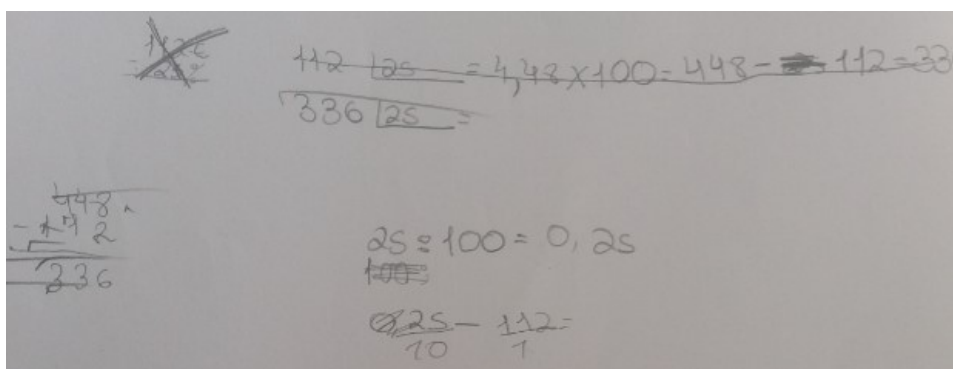 112 25 = 4,48 x 100 = 448 - 112 = 33
336 25 =
448
- 112
336
25 : 100 = 0,25
100
25/10 - 112/1 =